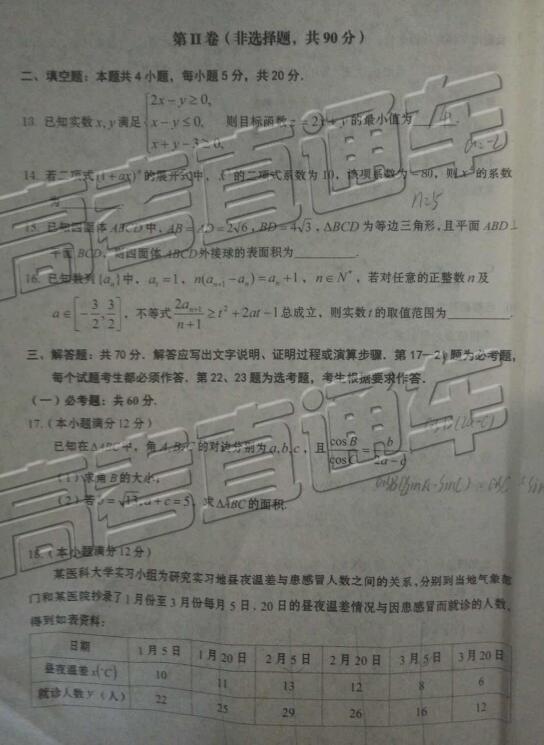 第 II 卷（非选择题，共 90 分）
二、填空题：本题共 4 小题，每小题 5 分，共 20 分．
13．已知实数 x, y 满足 { 2x − y ≥ 0, x − y ≤ 0, x + y − 3 ≥ 0, 则目标函数 z = 2x + y 的最小值为
a=-2
14．若二项式 (1 + ax) 的展开式中， 的二项式系数为 10，该项系数为 −80，则 的系数
为
n=5
15．已知四面体 ABCD 中，AB = AD = 2√6，BD = 4√3，△BCD 为等边三角形，且平面 ABD⊥
平面 BCD，则四面体 ABCD 外接球的表面积为________．
16．已知数列{aₙ}中，a₁ = 1，n(aₙ₊₁ − aₙ) = aₙ + 1，n ∈ N*，若对任意的正整数 n 及
a ∈ [−3/2, 3/2]，不等式 2aₙ₊₁/(n+1) ≥ t² + 2at − 1 总成立，则实数 t 的取值范围为________．
三、解答题：共 70 分．解答应写出文字说明、证明过程或演算步骤．第 17—21 题为必考题，
每个试题考生都必须作答．第 22、23 题为选考题，考生根据要求作答．
（一）必考题：共 60 分．
17．（本小题满分 12 分）
已知在△ABC 中，角 A, B, C 的对边分别为 a, b, c，且 cos B/cos C = b/(2a − c)
（1）求角 B 的大小；
（2）若 b = √13, a + c = 5，求△ABC 的面积．
18．（本小题满分 12 分）
某医科大学实习小组为研究实习地昼夜温差与患感冒人数之间的关系，分别到当地气象部
门和某医院抄录了 1 月份至 3 月份每月 5 日、20 日的昼夜温差情况与因患感冒而就诊的人数，
得到如表资料：
日期 1 月 5 日 1 月 20 日 2 月 5 日 2 月 20 日 3 月 5 日 3 月 20 日
昼夜温差 x(℃) 10 11 13 12 8 6
就诊人数 y（人） 22 25 29 26 16 12
高考直通车
高考直通车